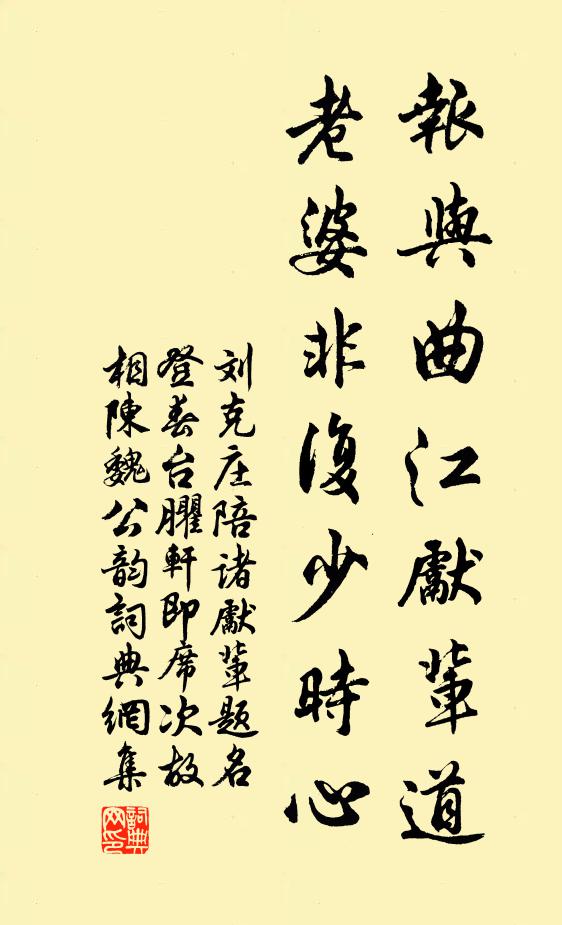 報與曲江獻輩道
老婆非復少時心
刘克庄陪诸獻輩题名
登春台臞軒即席次故
相陳魏公韵詞典網集
詞典网印